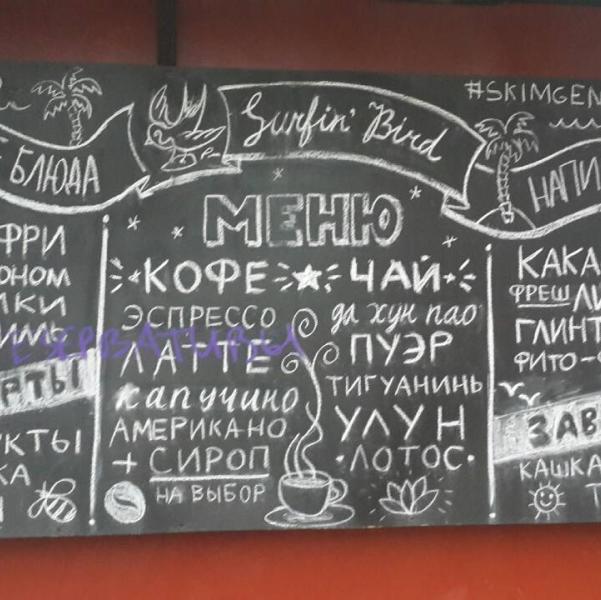 БЛЮДА
ФРИ
Surfin' Bird
МЕНЮ
КОФЕ
ЭСПРЕССО
ЛАТТЕ
капучино
АМЕРИКАНО
+ СИРОП
НА ВЫБОР
ЧАЙ
да хун пао
ПУЭР
ТИГУАНИНЬ
УЛУН
ЛОТОС
#SKIMGEN
НАПИ
КАКА
ФРЕШ ЛИ
ГЛИНТ
ФИТО-
ЗАВ
КАШКА